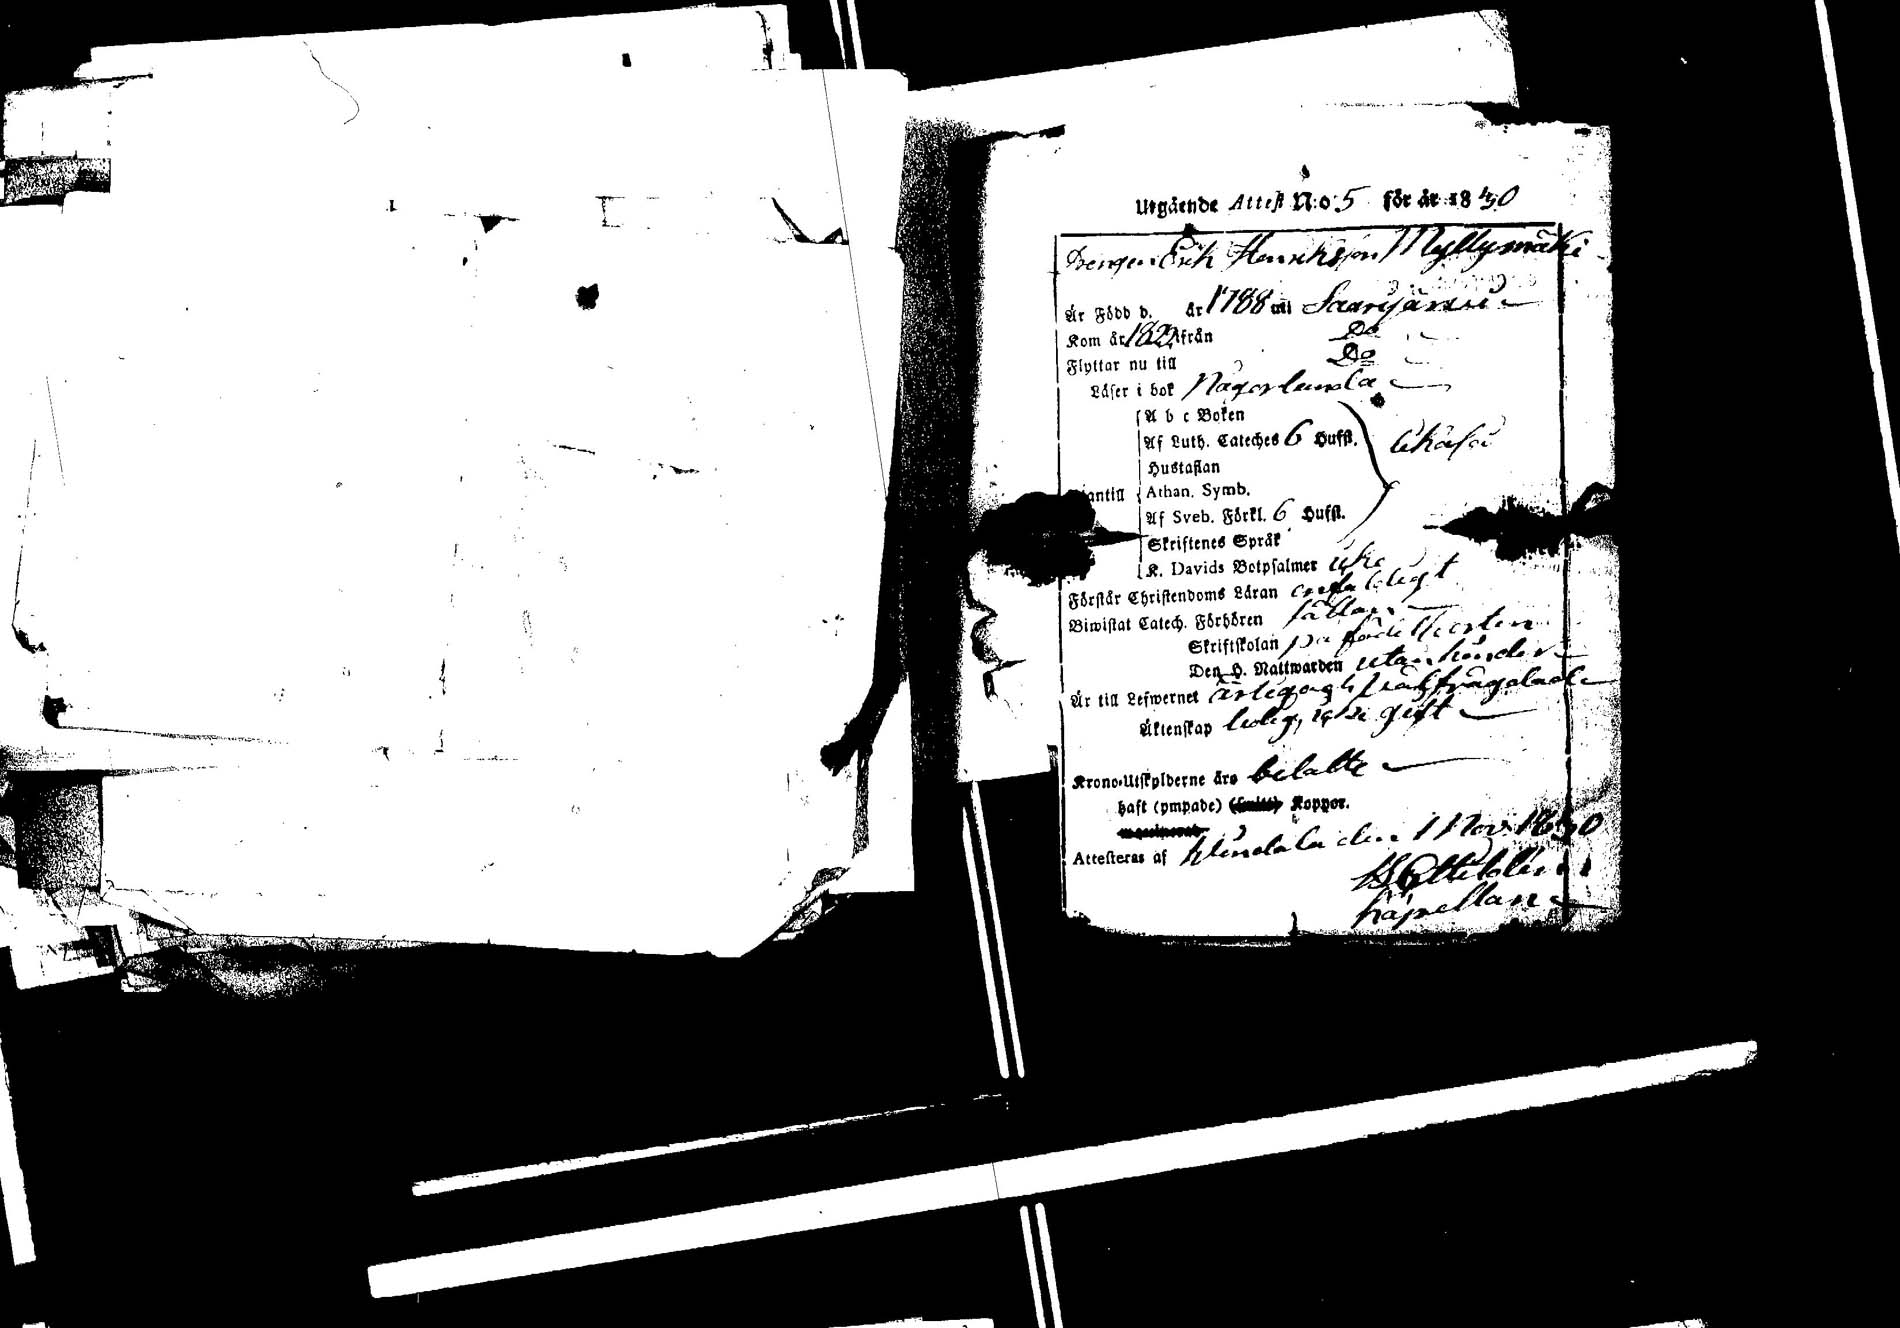 Utgående Attest N:o 5 för år 1840
Drengen Erik Henriksson Myllymäki
Är Född d. år 1788 uti Saarijärvi
Kom år 182 ifrån Do
Flyttar nu till Do
Läser i bok Någorlunda
A b c Boken
Af Luth. Cateches 6 Hufst.
likaså
Hustaflan
antill Athan. Symb.
Af Sveb. Förkl. 6 Hufst.
Skriftenes Språk
K. Davids Botpsalmer icke
Förstår Christendoms Läran enfaldigt
Biwistat Catech. Förhören sällan
Skriftskolan på födelseorten
Den H. Nattwarden utan hinder
Är till Lefwernet ärlig och wälfrägdade
Äktenskap ledig, icke gift
Krono-Utskylderne äro betalte
haft (ympade) Koppor.
Attesteras af den 1 Nov. 1840
Kapellan